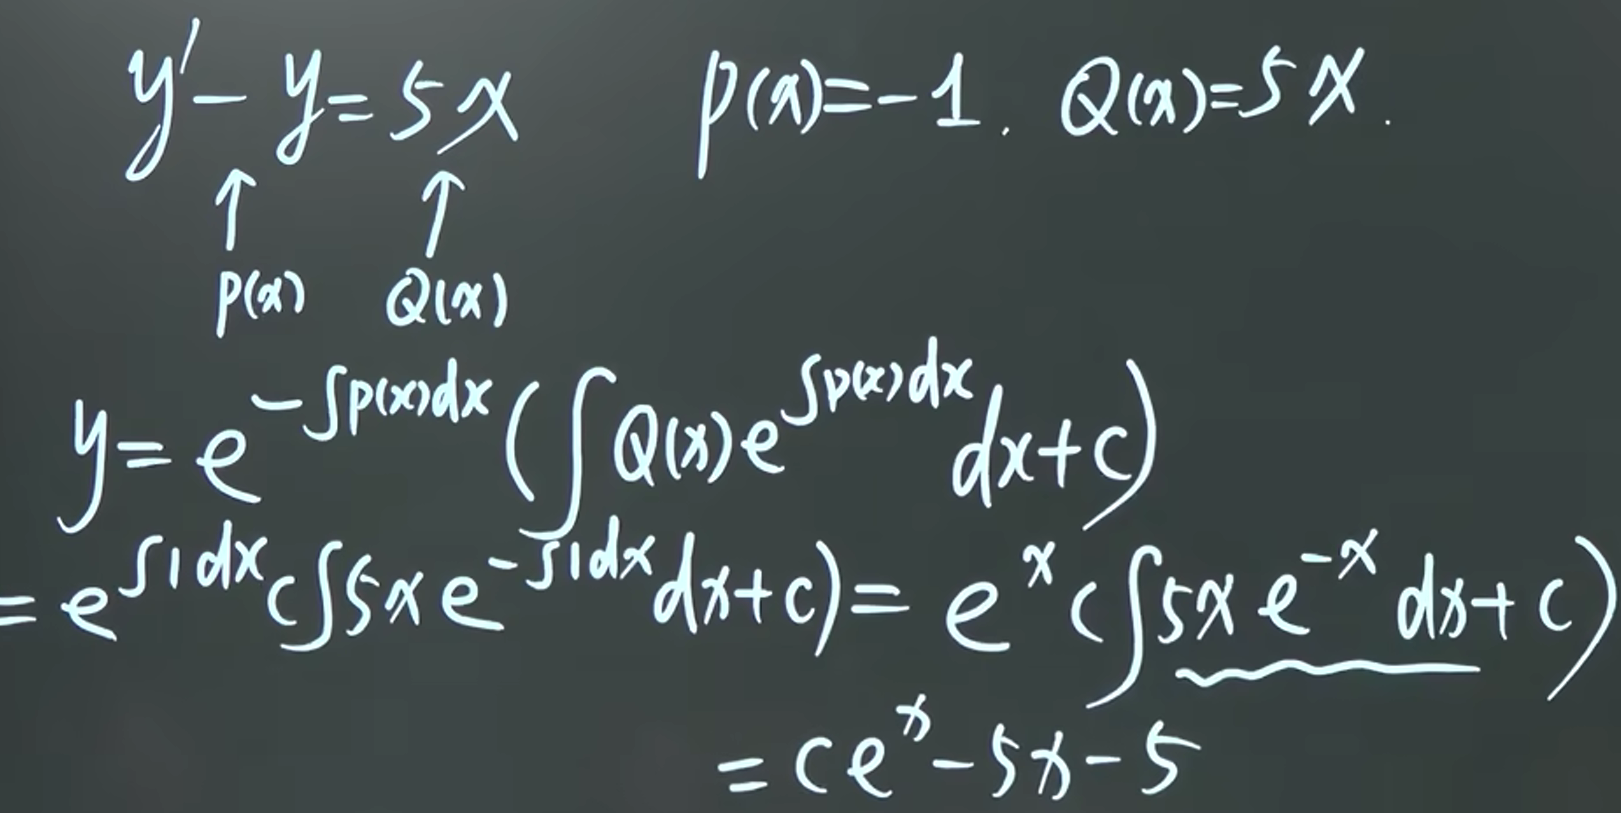 y' - y = 5x    p(x) = -1.  Q(x) = 5x.
↑ ↑
p(x)  Q(x)
y = e^{-∫p(x)dx} (∫Q(x)e^{∫p(x)dx} dx + c)
= e^{∫1dx} (∫5xe^{-∫1dx} dx + c) = e^x (∫5xe^{-x} dx + c)
= ce^x - 5x - 5